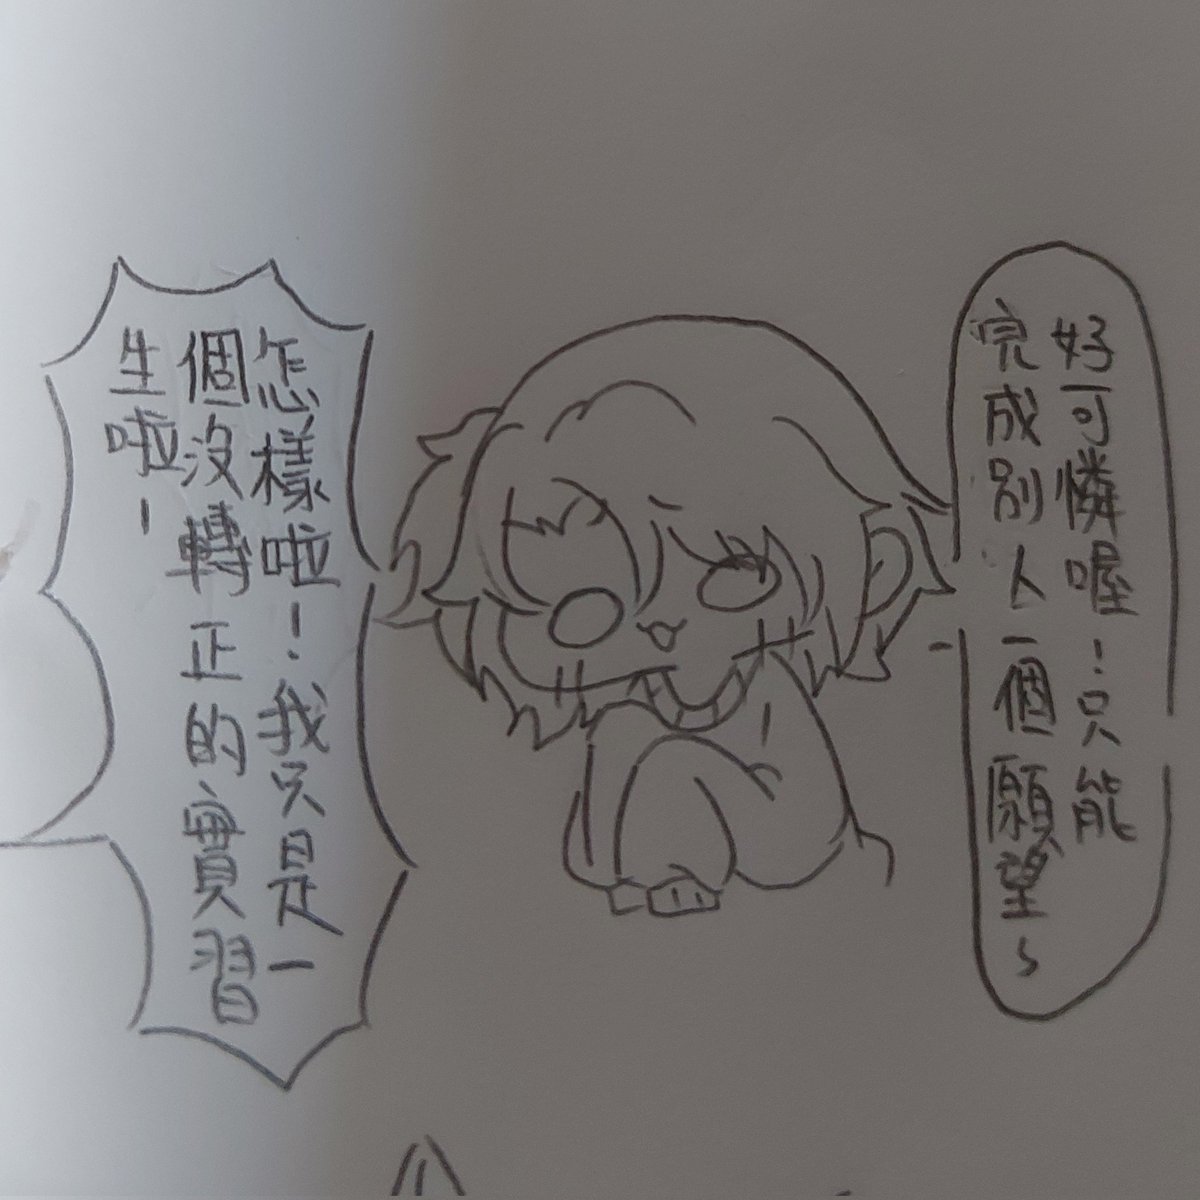 好可憐喔！只能
完成別人一個願望~
怎樣啦！我只是一
個沒轉正的實習
生啦！